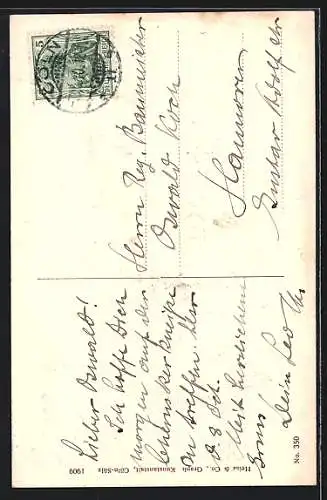 Lieber Oswald!
Ich hoffe Dich
morgen auf der
zu treffen
d. 8 Oct.
Mit herzlichem
Gruss
Dein Leo
Herrn Reg. Baumeister
Oswald Koch
Hannover
Gustav Adolfstr
CÖLN
5
Heiss & Co., Graph. Kunstanstalt, Cöln-Sülz 1909
No. 350